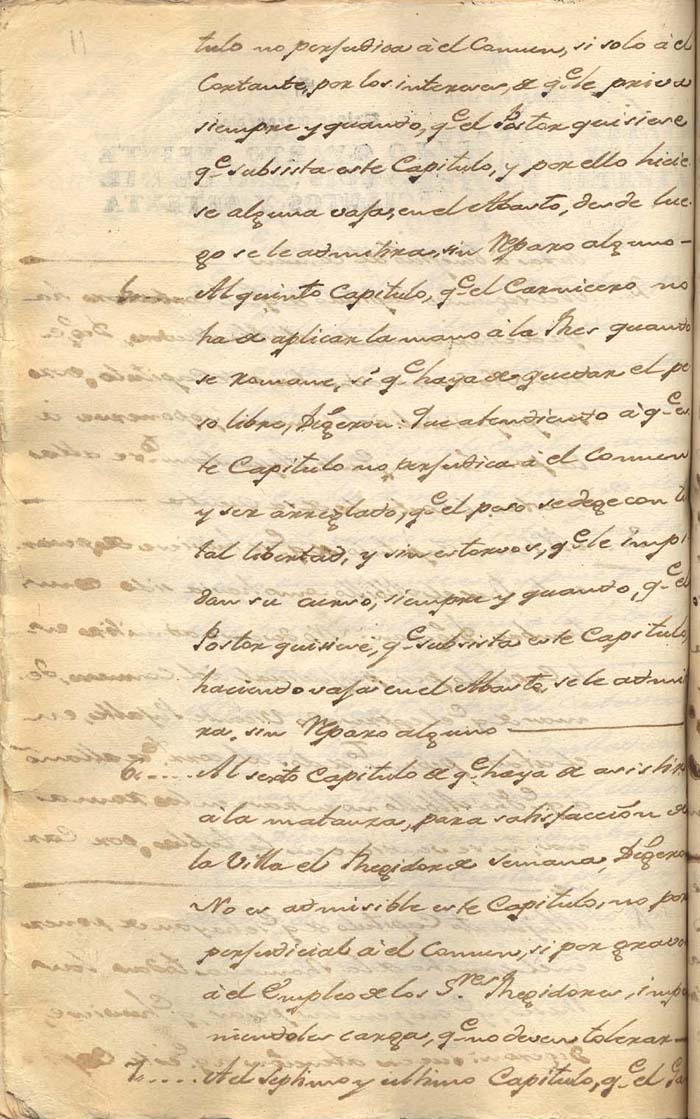 11
tulo no perjudica à el Comun, si solo à el
Cortante, por los intereses, de qe. le priva
siempre y quando, qe. el Postor quisiese
qe. subsista este Capitulo, y por ello hicie
se alguna vaja, en el Abasto, desde lue
go se le admitira, sin Reparo alguno -
5.... Al quinto Capitulo, qe. el Carnicero no
ha de aplicar la mano à la Rhes quando
se Romane, si qe. haya de quedar el pe
so libre, Digeron: Que atendiendo à qe. es
te Capitulo no perjudica à el Comun
y ser arreglado, qe. el peso se dege con to
tal libertad, y sin estorvos, qe. le impi
dan su curso, siempre y quando, qe. el
Postor quisiese, qe. subsista este Capitulo,
haciendo vaja en el Abasto, se le admiti
ra, sin Reparo alguno
6.... Al sexto Capitulo de qe. haya de asistir
a la matanza, para satisfacción de
la Villa el Rhegidor de semana, Digeron
No es admisible este Capitulo, no por
perjudicial à el Comun, si por gravoso
à el Empleo de los Sres. Rhegidores, impo
niendoles carga, qe. no deven tolerar -
7.... Al septimo y ultimo Capitulo, qe. el